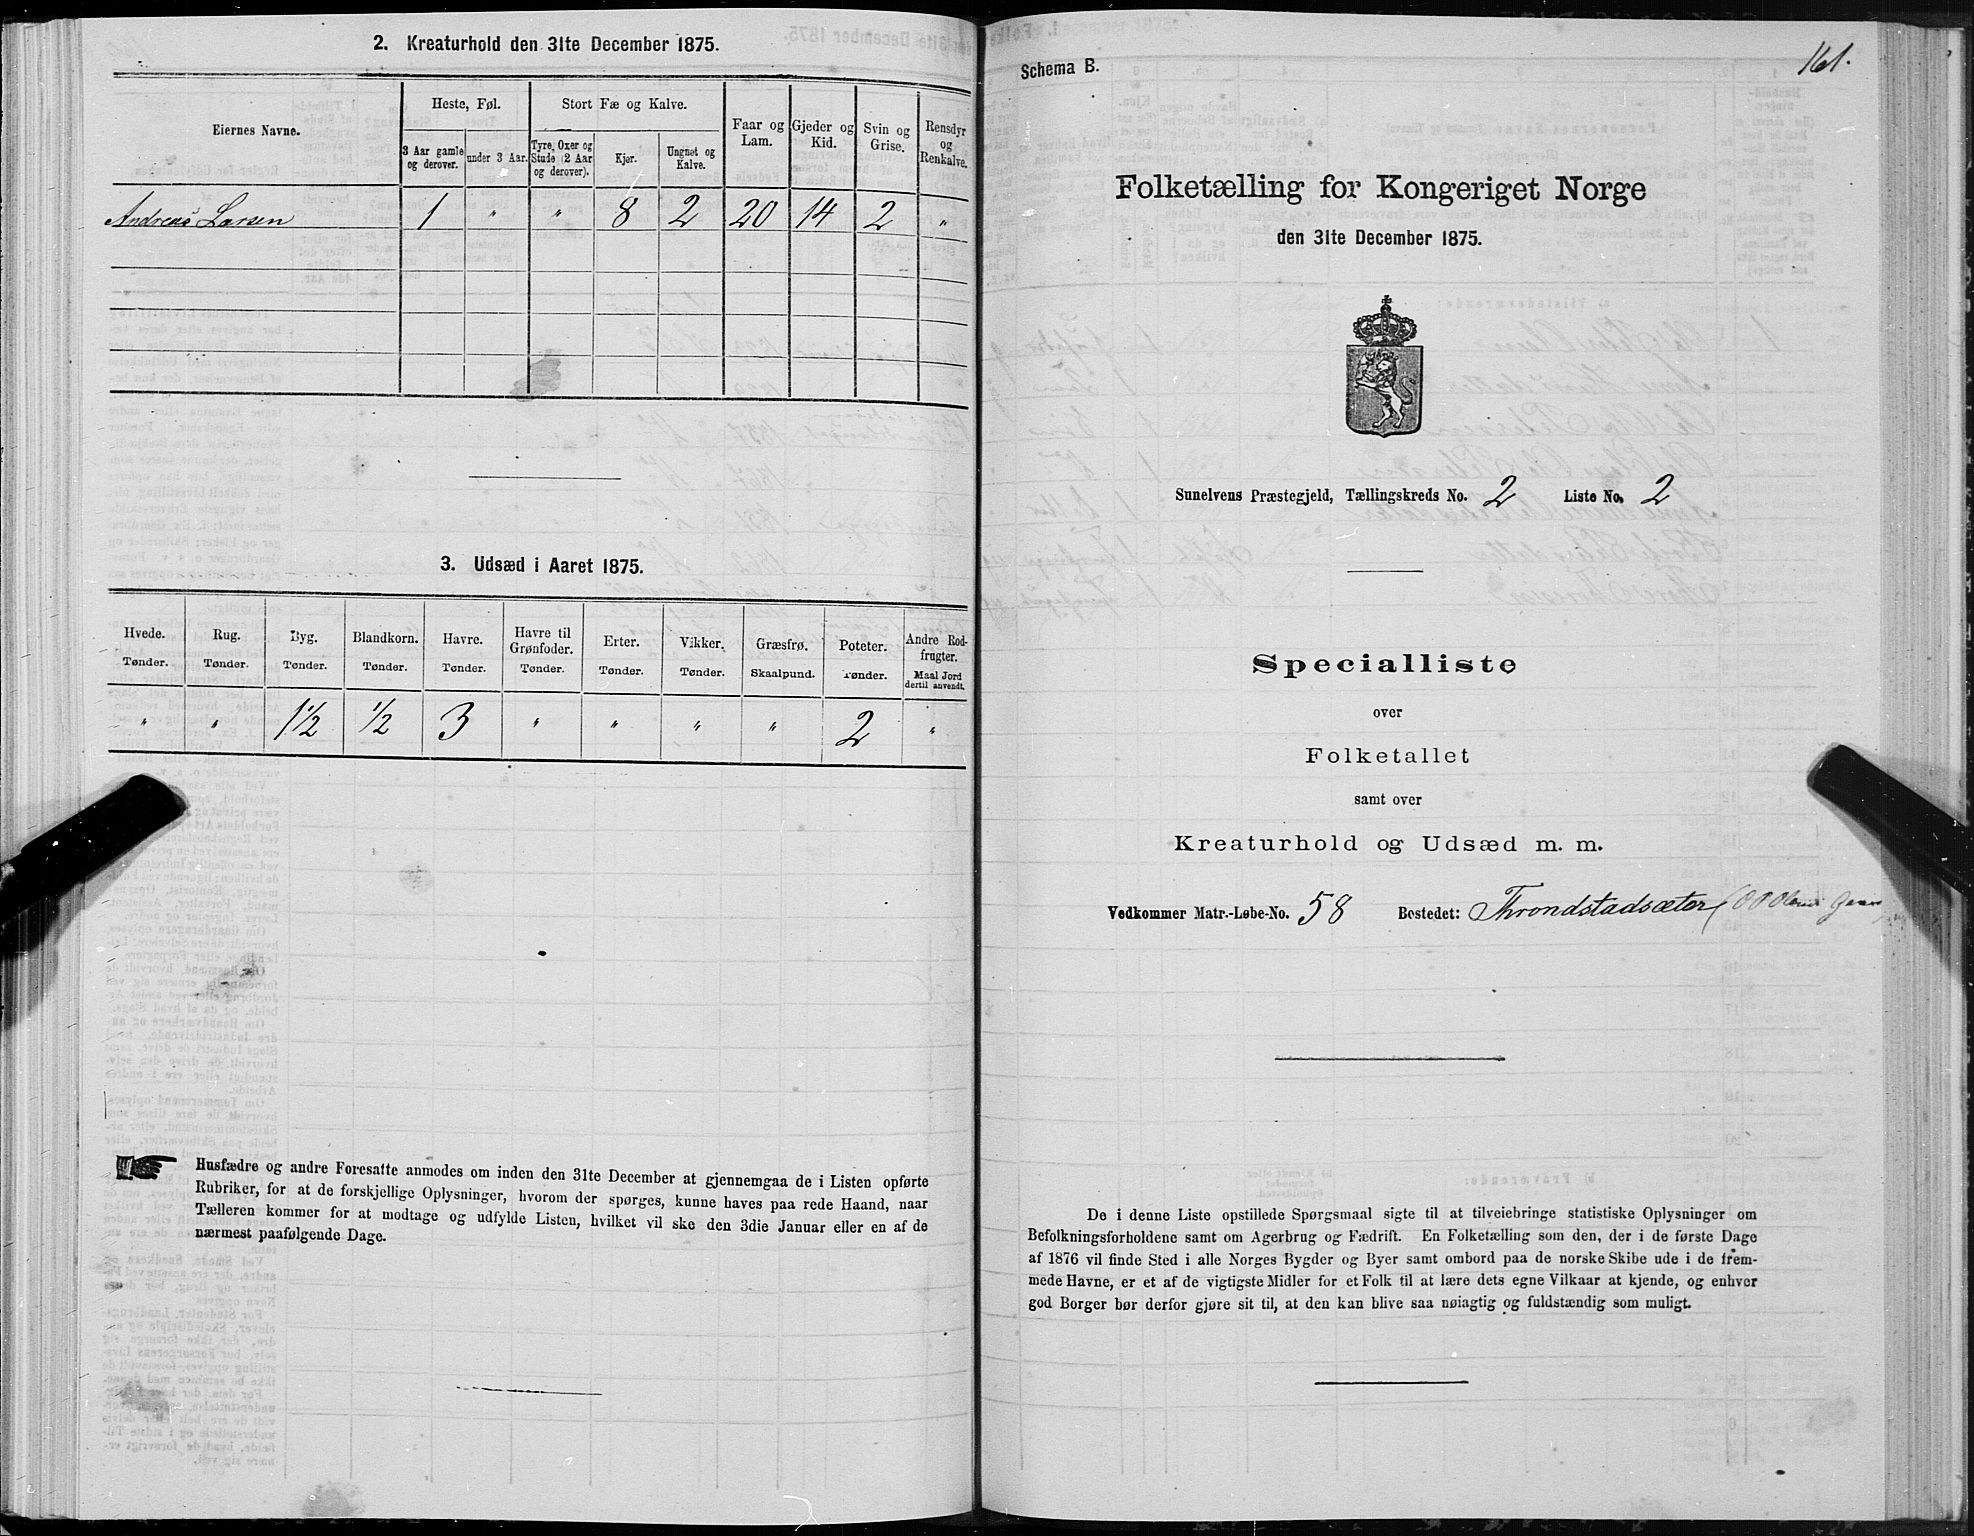 2. Kreaturhold den 31te December 1875.
Eiernes Navne.
Heste, Føl.
Stort Fæ og Kalve.
Faar og Lam.
Gjeder og Kid.
Svin og Grise.
Rensdyr og Renkalve.
3 Aar gamle og derover.
under 3 Aar.
Tyre, Oxer og Stude (2 Aar og derover).
Kjør.
Ungnøt og Kalve.
Andreas Larsen 1 " " 8 2 20 14 2 "
3. Udsæd i Aaret 1875.
Hvede. Rug. Byg. Blandkorn. Havre. Havre til Grønfoder. Erter. Vikker. Græsfrø. Poteter. Andre Rodfrugter.
Tønder. Tønder. Tønder. Tønder. Tønder. Tønder. Tønder. Tønder. Skaalpund. Tønder. Maal Jord dertil anvendt.
" " 1½ ½ 3 " " " " 2 "
Husfædre og andre Foresatte anmodes om inden den 31te December at gjennemgaa de i Listen opførte
Rubriker, for at de forskjellige Oplysninger, hvorom der spørges, kunne haves paa rede Haand, naar
Tælleren kommer for at modtage og udfylde Listen, hvilket vil ske den 3die Januar eller en af de
nærmest paafølgende Dage.
Schema B.
161.
Folketælling for Kongeriget Norge
den 31te December 1875.
Sunelvens Præstegjeld, Tællingskreds No. 2 Liste No. 2
Specialliste
over
Folketallet
samt over
Kreaturhold og Udsæd m. m.
Vedkommer Matr.-Løbe-No. 58 Bostedet: Throndstadsæter
De i denne Liste opstillede Spørgsmaal sigte til at tilveiebringe statistiske Oplysninger om
Befolkningsforholdene samt om Agerbrug og Fædrift. En Folketælling som den, der i de første Dage
af 1876 vil finde Sted i alle Norges Bygder og Byer samt ombord paa de norske Skibe ude i de frem-
mede Havne, er et af de vigtigste Midler for et Folk til at lære dets egne Vilkaar at kjende, og enhver
god Borger bør derfor gjøre sit til, at den kan blive saa nøiagtig og fuldstændig som muligt.